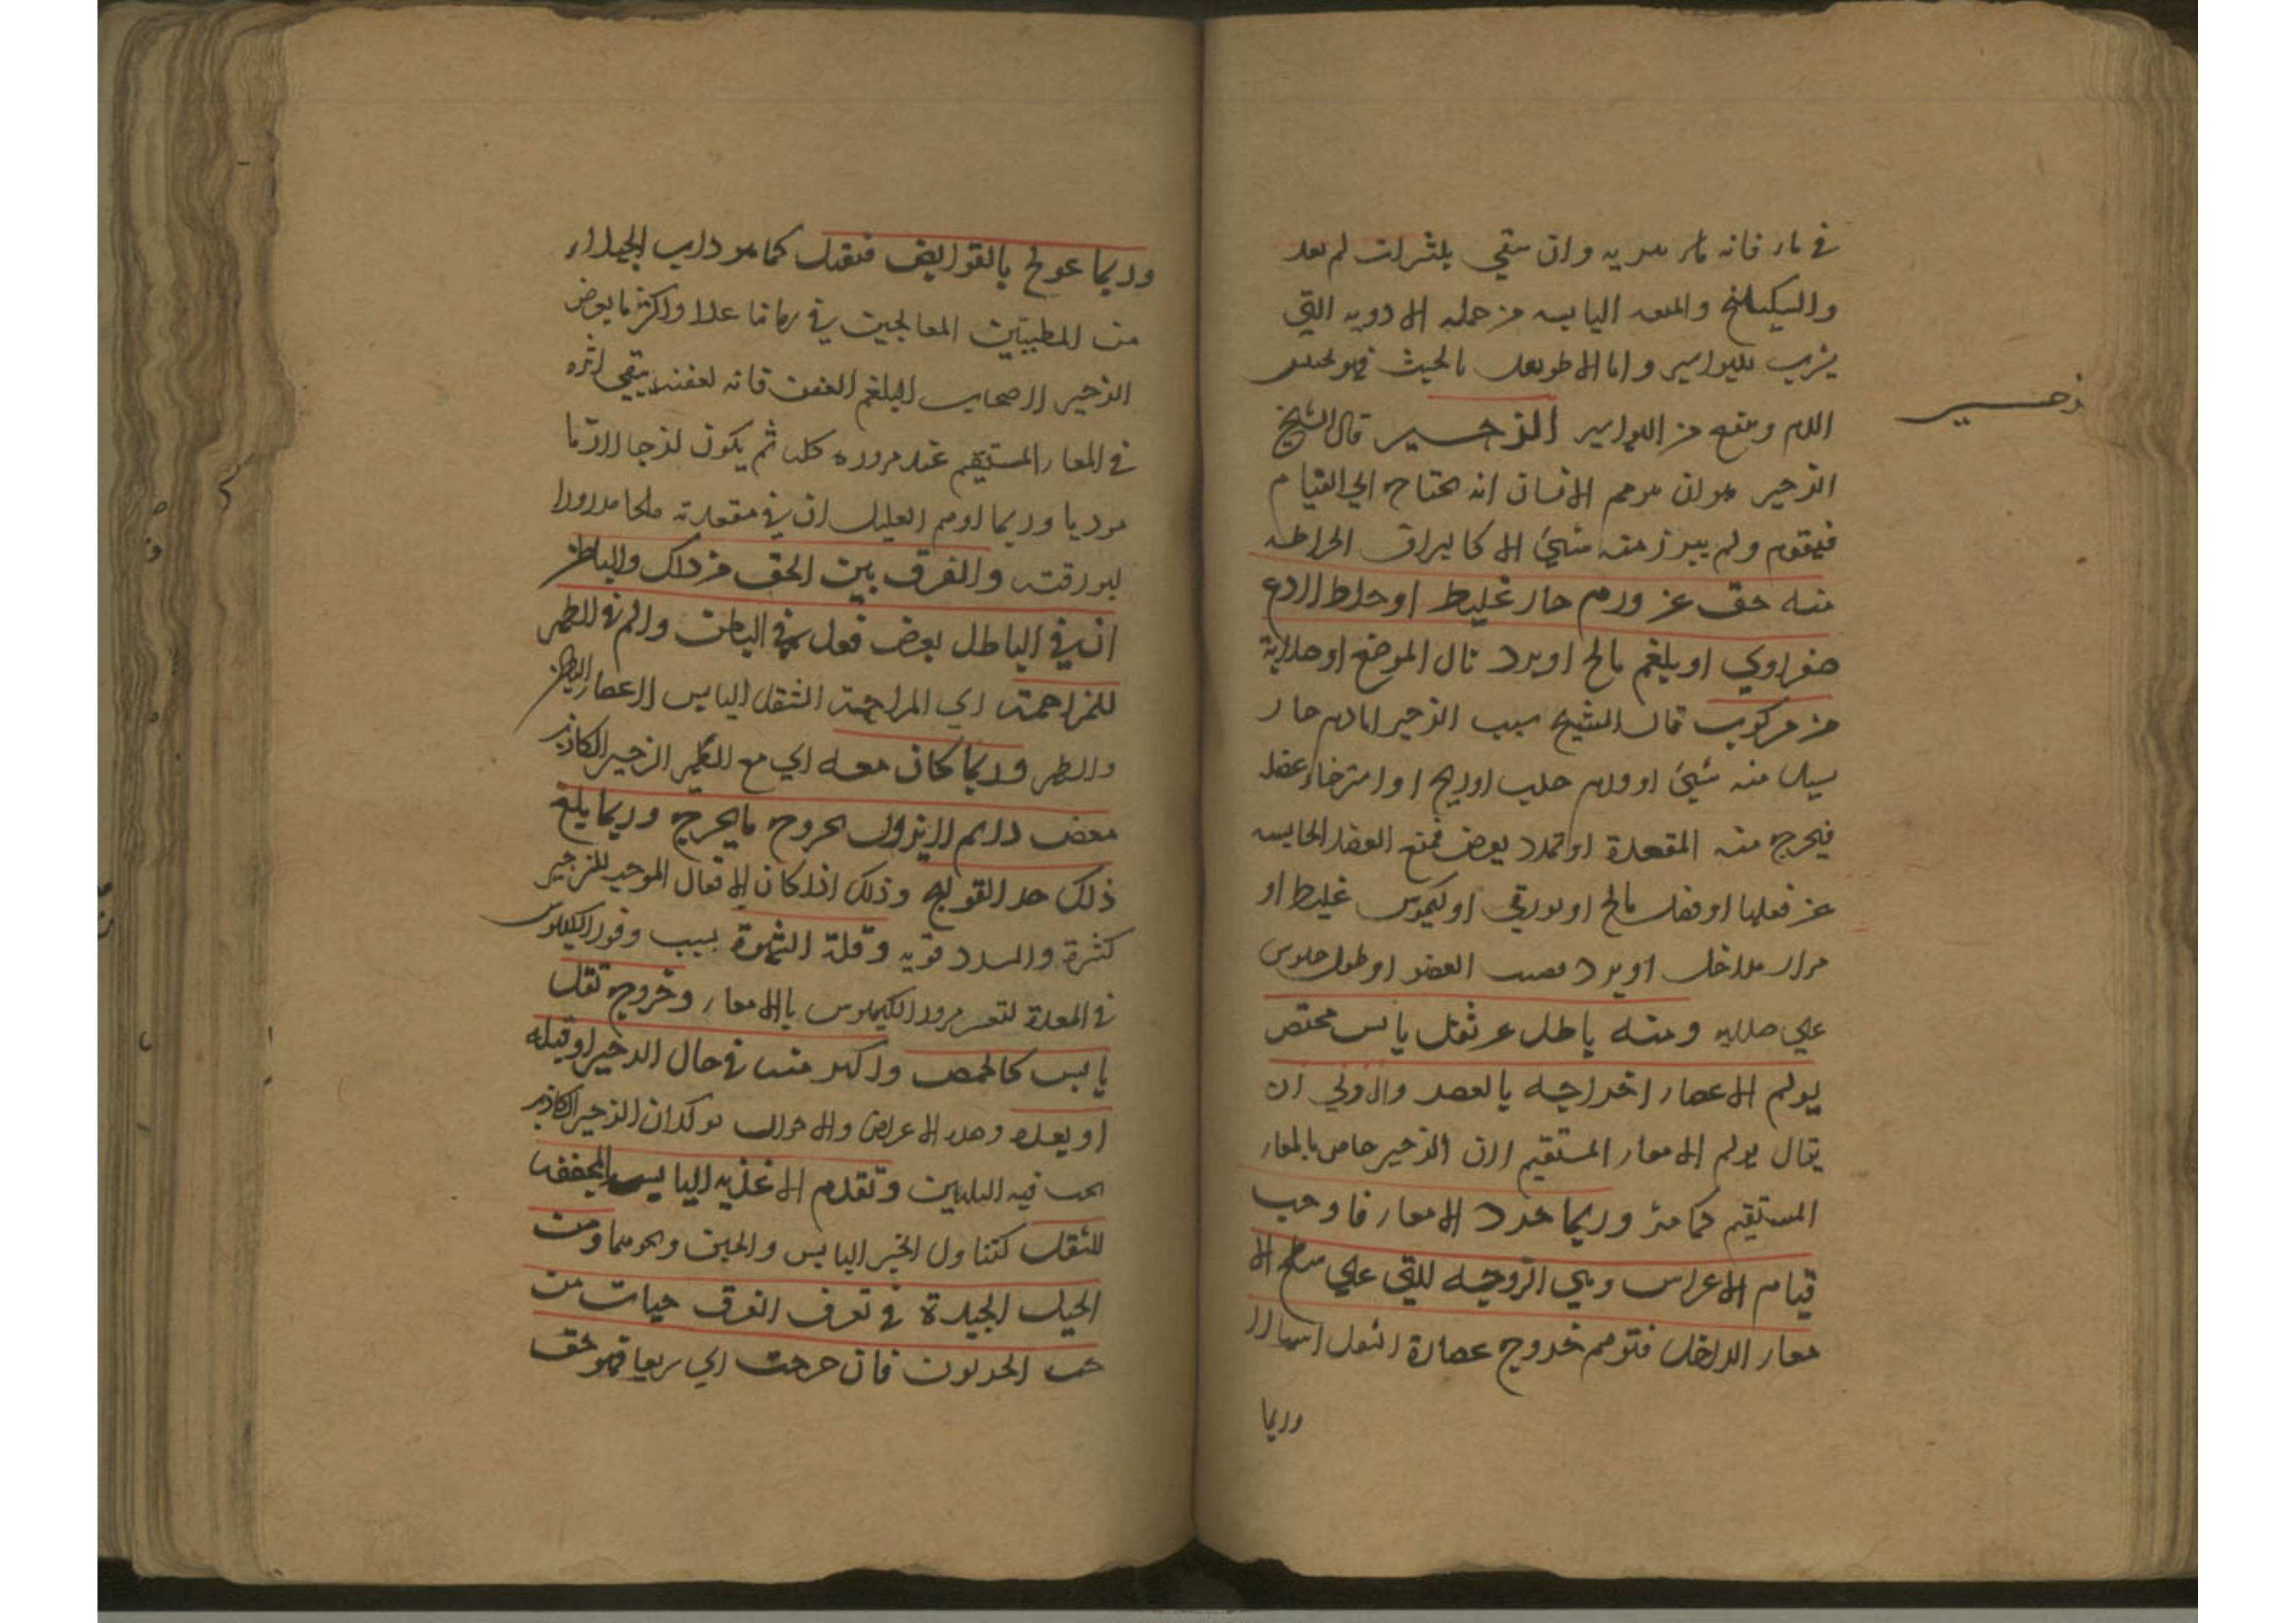 في ماء فانه وان سقي بلثرات لم بعد
والسكبينج اليابسه من جمله الادويه التي
يشرب للبواسير واما
الدم وينفع من البواسير الزحسير قال الشيخ
زحسير
الزحير هو ان يوهم الانسان انه يحتاج الي القيام
فيقوم ولم يبرز منه شيئ الا كالبزاق الخراطه
منه حق عن ورم حار غليظ او خلط لاذع
صفراوي او بلغم مالح او برد نال الموضع او صلابة
من مركوب قال الشيخ سبب الزحير اما ورم حار
يسيل منه شيئ او ورم صلب او ريح او استرخاء عضله
فيخرج منه المقعدة او تمدد يعرض فمنع العضله الحابسه
عن فعلها او فضل مالح او بورقي او كيموس غليظ او
مرار مداخل او برد يصيب العضو او طول جلوس
علي صلابه ومنه باطل عن ثفل يابس محتبس
يولم الامعاء اخراجه بالعصر والاولي ان
يقال يولم الامعاء المستقيم لان الزحير خاص بالمعاء
المستقيم كما مر وربما جرد الامعاء فاوجب
قيام الاغراس وهي اللزوجه التي علي سطح الا
معاء الداخل فتوهم خروج عصارة الثفل اسهالا
وربما
وربما عولج بالقوابض فيقتل كما هو داب الجهلاء
من المطببين المعالجين في زماننا هذا واكثر ما يعرض
الزحير لاصحاب البلغم العفن فانه لعفنه يبقي اثره
في المعاء المستقيم عند مروره كله ثم يكون لزجا لازما
موذيا وربما اوهم العليل ان في مقعدته ملحا مذرورا
لبورقته والفرق بين الحق من ذاك والباطل
ان في الباطل بعض فعل في الباطن والم في الظهر
للمزاحمة اي المزاحمة الثفل اليابس لاعصاء البطن
والظهر وربما كان معه اي مع الظهر الزحير الكاذب
مغص دايم لا يزول بخروج ما يخرج وربما بلغ
ذلك حد القولنج وذلك اذا كان الموجبه للزحير
كثرة والسدد قويه وقلة الشهوة بسبب وقوف الكيلوس
في المعدة لتعسر مرور الكيلوس بالامعاء وخروج ثفل
يابس كالحمص واكثر منه في حال الزحير او قبله
او بعده وهذه الاعراض والاحوال الزحير الكاذب
يجب فيه التليين وتقدم الاغذيه اليابسه المجففه
للثفل كتناول الخبز اليابس والجبن ونحوهما ومن
الحيل الجيدة في تعرف الفرق حبات من
حب الخرنوب فان خرجت اي سريعا فهو حق